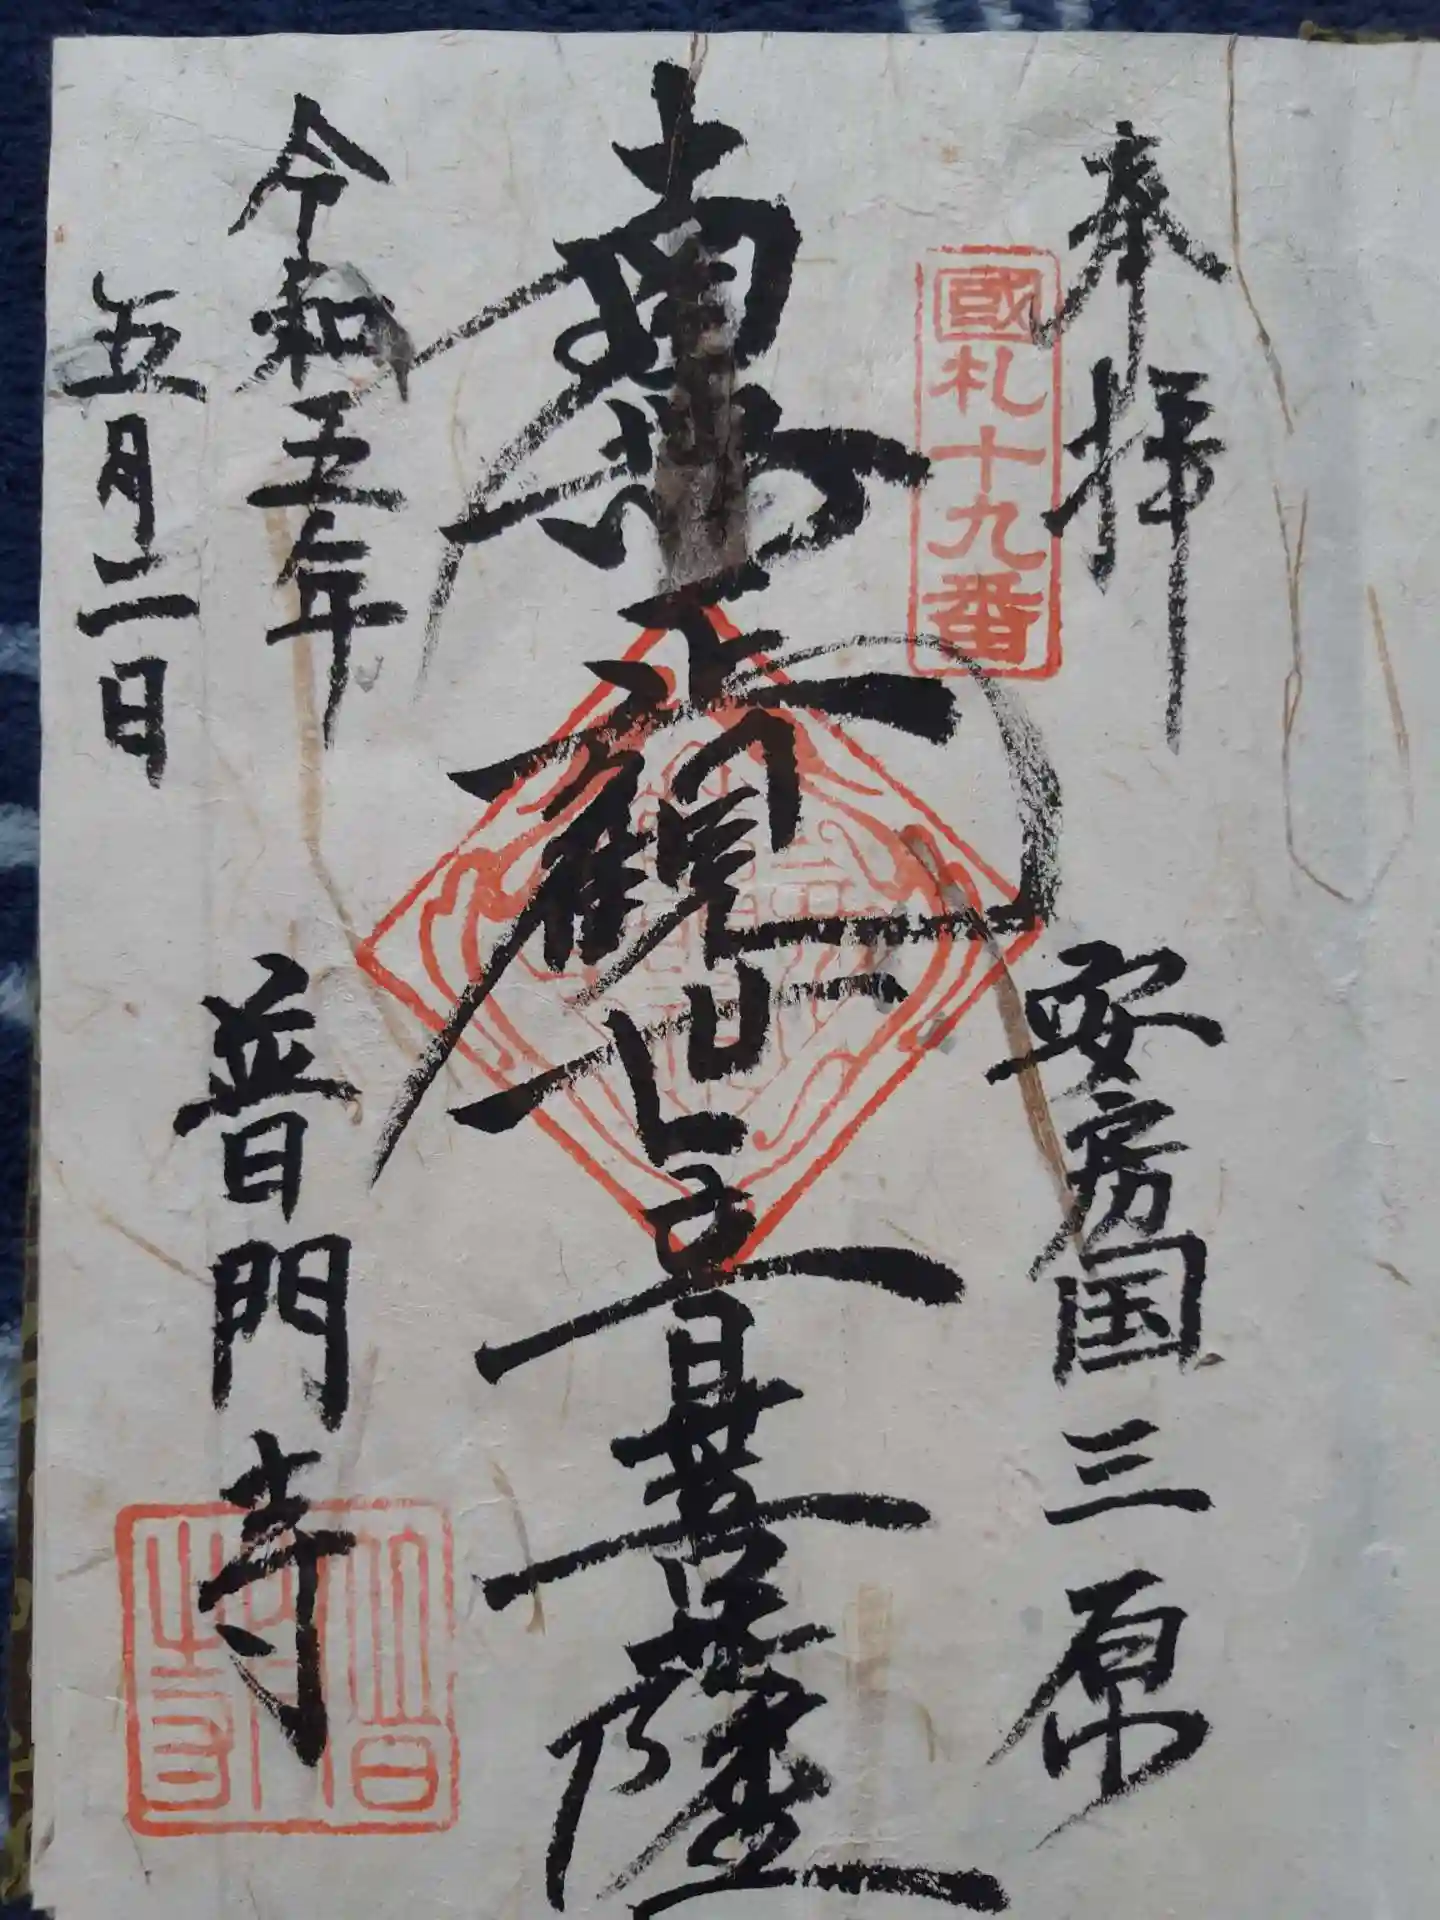 奉拝
安房国三原
國札十九番
南無正観世音菩薩
令和五年
五月二日
普門寺
普門寺